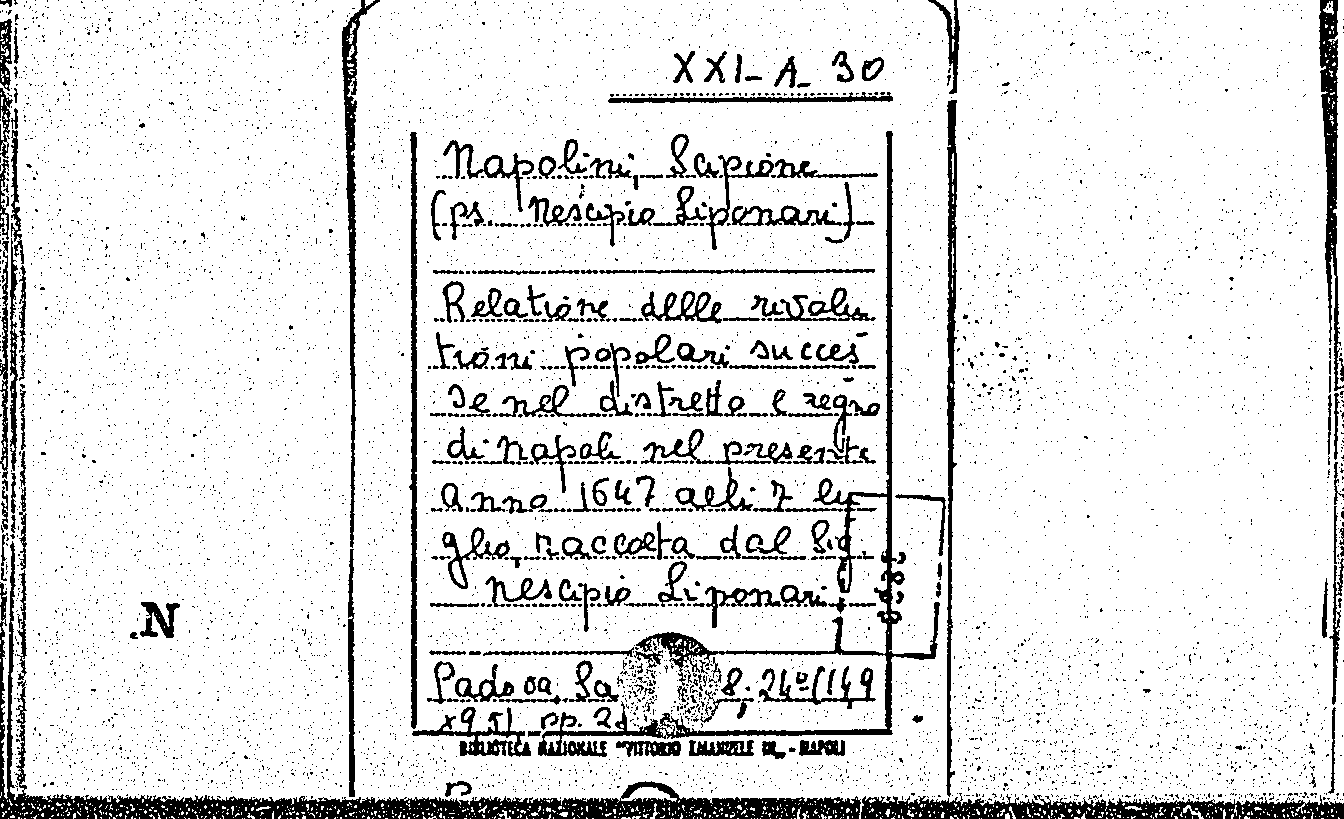 XXI_ A_ 30
Napolini, Scipione
(ps. Nescipio Liponari)
Relatione delle rivolu
tioni popolari succes
se nel distretto e regno
di Napoli nel presente
anno 1647 alli 7 lu
glio, raccolta dal Sig.
Nescipio Liponari
Padova, Sa 8; 24º (14,9
x9,5) pp. 2
BIBLIOTECA NAZIONALE "VITTORIO EMANUELE III" - NAPOLI
.N